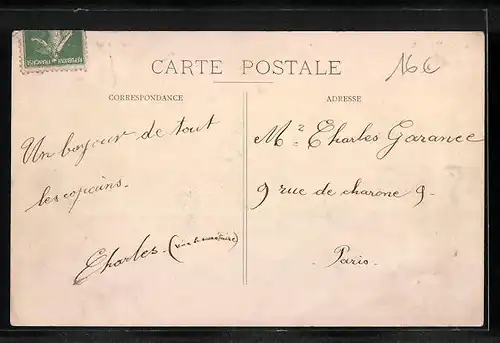 REPUBLIQUE FRANÇAISE
16 €
CARTE POSTALE
CORRESPONDANCE
ADRESSE
Un bojour de tout
les copains.
Charles. (vive le
Mr Charles Garance
9 rue de charone 9.
Paris.